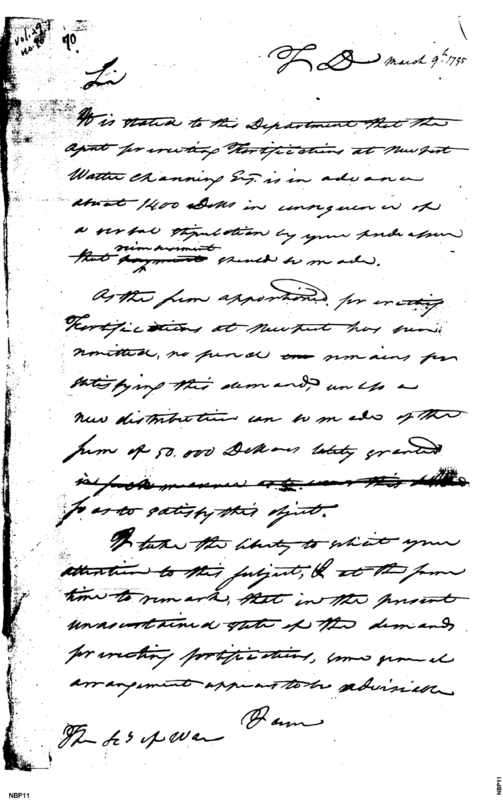 vol. 29
no. 70
T D March 9th 1795
Sir
It is stated to this Department that the
Agent for erecting Fortifications at Newport
Walter Channing Esqr. is in advance
about 1400 Dolls in consequence of
a verbal stipulation by your predecessor
reimbursement
that payment should be made.
As the sum apportioned for erecting
Fortifications at Newport has been
remitted, no fund remains for
satisfying this demand, unless a
new distribution can be made of the
sum of 50.000 Dollars lately granted
in such manner as to this
so as to satisfy this object.
I take the liberty to solicit your
attention to this subject, & at the same
time to remark, that in the present
unascertained state of the demands
for erecting fortifications, some general
arrangement appears to be advisable
I am
The Secy of War
NBP11
NBP11